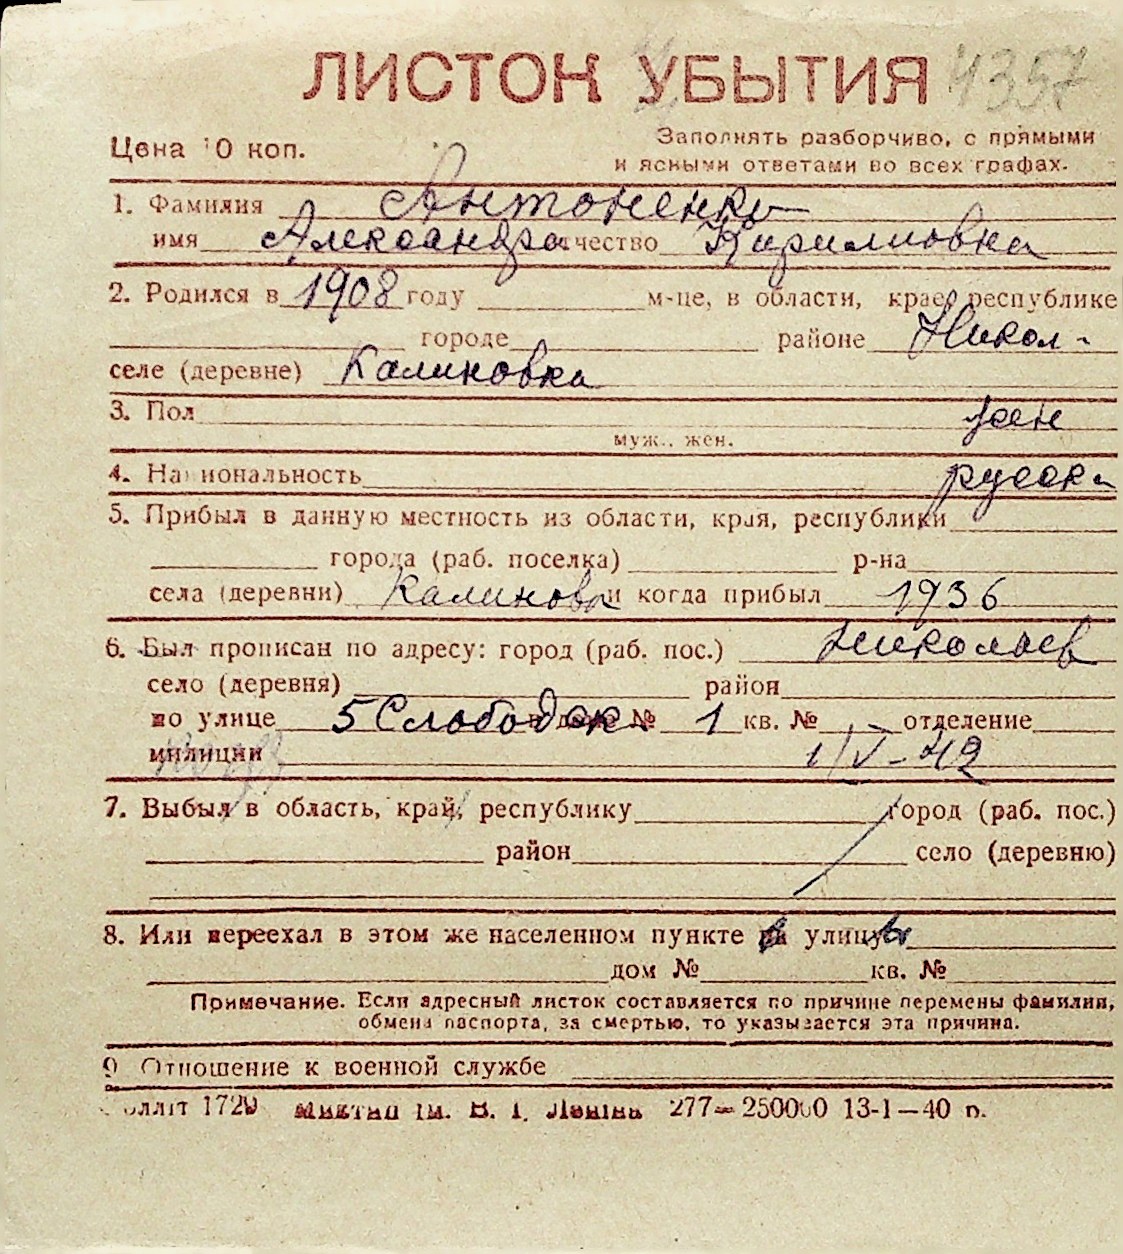 ЛИСТОК УБЫТИЯ 4357
Цена 10 коп.
Заполнять разборчиво, с прямыми
и ясными ответами во всех графах.
1. Фамилия Антоненко
имя Александра отчество Кирилловна
2. Родился в 1908 году м-це, в области, крае, республике
городе районе Никол-
селе (деревне) Калиновка
3. Пол жен
муж., жен.
4. Национальность русска
5. Прибыл в данную местность из области, края, республики
города (раб. поселка) р-на
села (деревни) Калиновк и когда прибыл 1936
6. Был прописан по адресу: город (раб. пос.) Николаев
село (деревня) район
по улице 5 Слободск. дом № 1 кв. № отделение
милиции 1/V-42
7. Выбыл в область, край, республику город (раб. пос.)
район село (деревню)
8. Или переехал в этом же населенном пункте улицу
дом № кв. №
Примечание. Если адресный листок составляется по причине перемены фамилии,
обмена паспорта, за смертью, то указывается эта причина.
9 Отношение к военной службе
1729 ім. В. І. Леніна 277—250000 13-1—40 р.